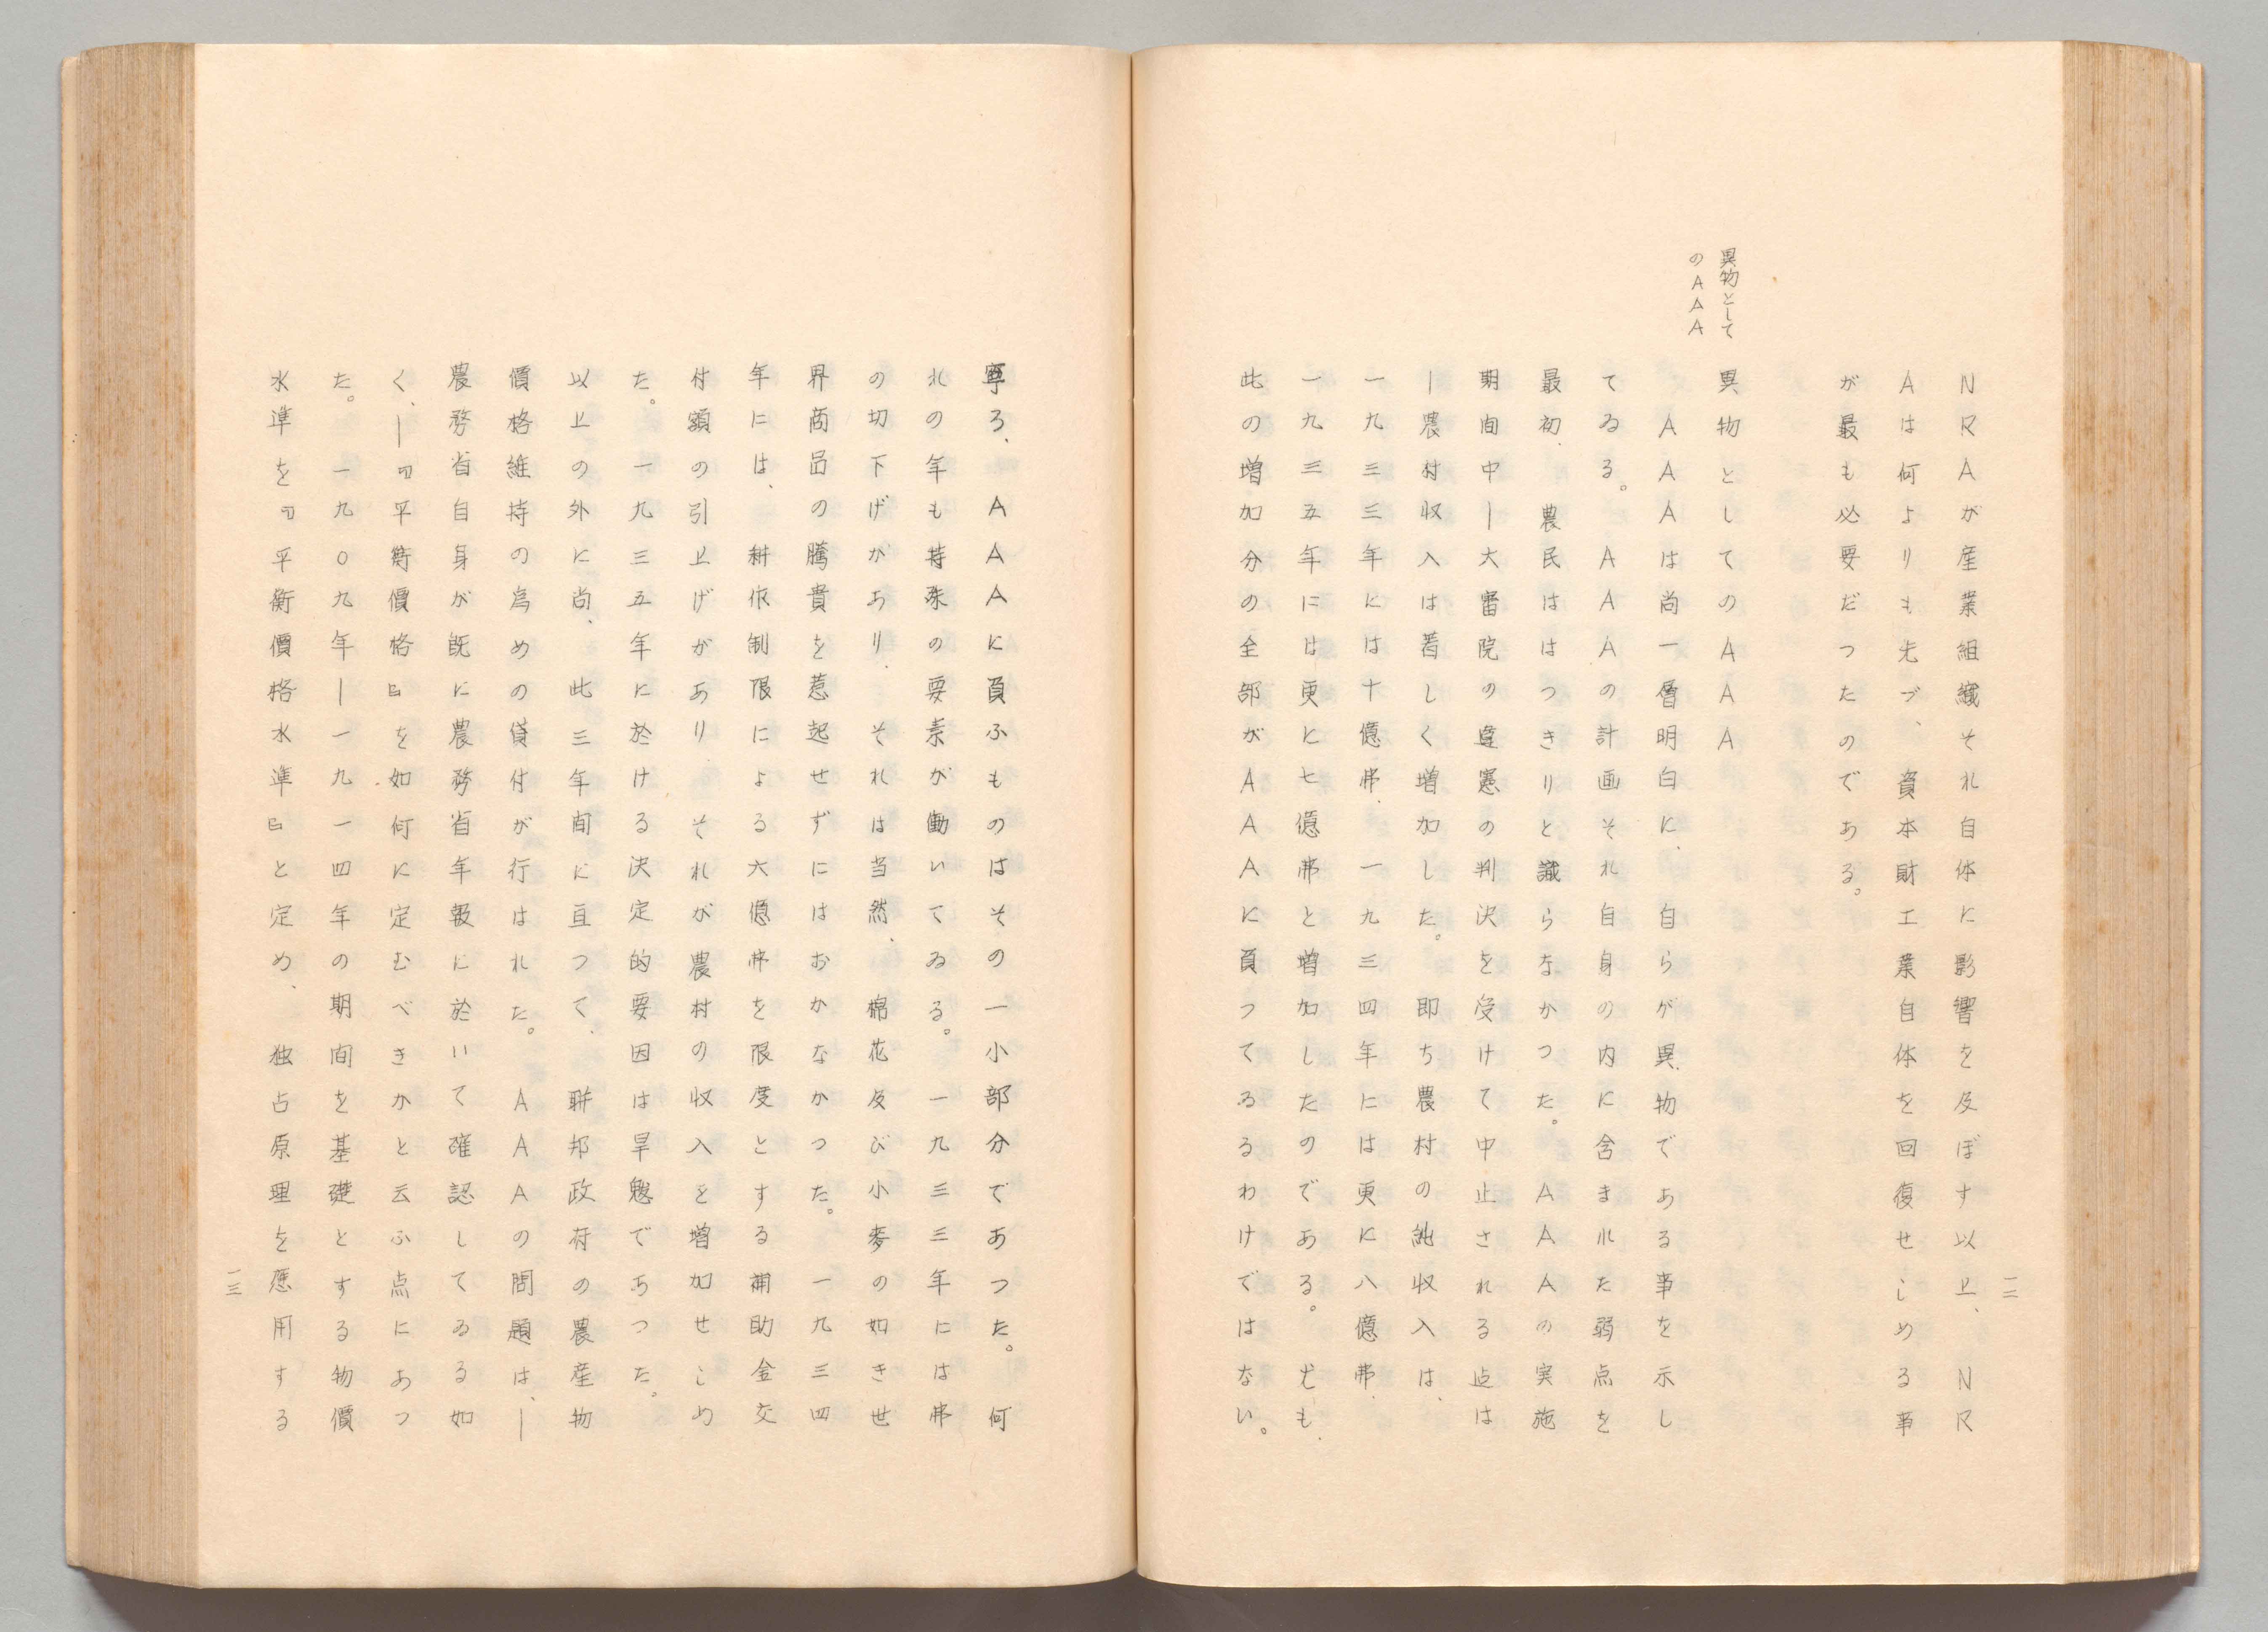 一二
NRAが産業組織それ自体に影響を及ぼす以上、NR
Aは何よりも先づ、資本財工業自体を回復せしめる事
が最も必要だつたのである。
異物として
のAAA
異物としてのAAA
AAAは尚一層明白に、自らが異物である事を示し
てゐる。AAAの計画それ自身の内に含まれた弱点を
最初、農民ははつきりと識らなかつた。AAAの実施
期间中―大審院の違憲の判決を受けて中止される迄は
―農村収入は著しく増加した。即ち農村の純収入は、
一九三三年には十億弗、一九三四年には更に八億弗、
一九三五年には更に七億弗と増加したのである。尤も、
此の増加分の全部がAAAに負つてゐるわけではない。
寧ろ、AAAに負ふものはその一小部分であつた。何
れの年も特殊の要素が働いてゐる。一九三三年には弗
の切下げがあり、それは当然、棉花及び小麥の如き世
界商品の騰貴を惹起せずにはおかなかつた。一九三四
年には、耕作制限による六億弗を限度とする補助金交
付額の引上げがあり、それが農村の収入を増加せしめ
た。一九三五年に於ける決定的要因は旱魃であつた。
以上の外に尚、此三年间に亘つて、聯邦政府の農産物
價格維持の為めの貸付が行はれた。AAAの問題は、―
農務省自身が既に農務省年報に於いて確認してゐる如
く、―『平衡價格』を如何に定むべきかと云ふ点にあつ
た。一九〇九年―一九一四年の期间を基礎とする物價
水準を『平衡價格水準』と定め、独占原理を應用する
一三